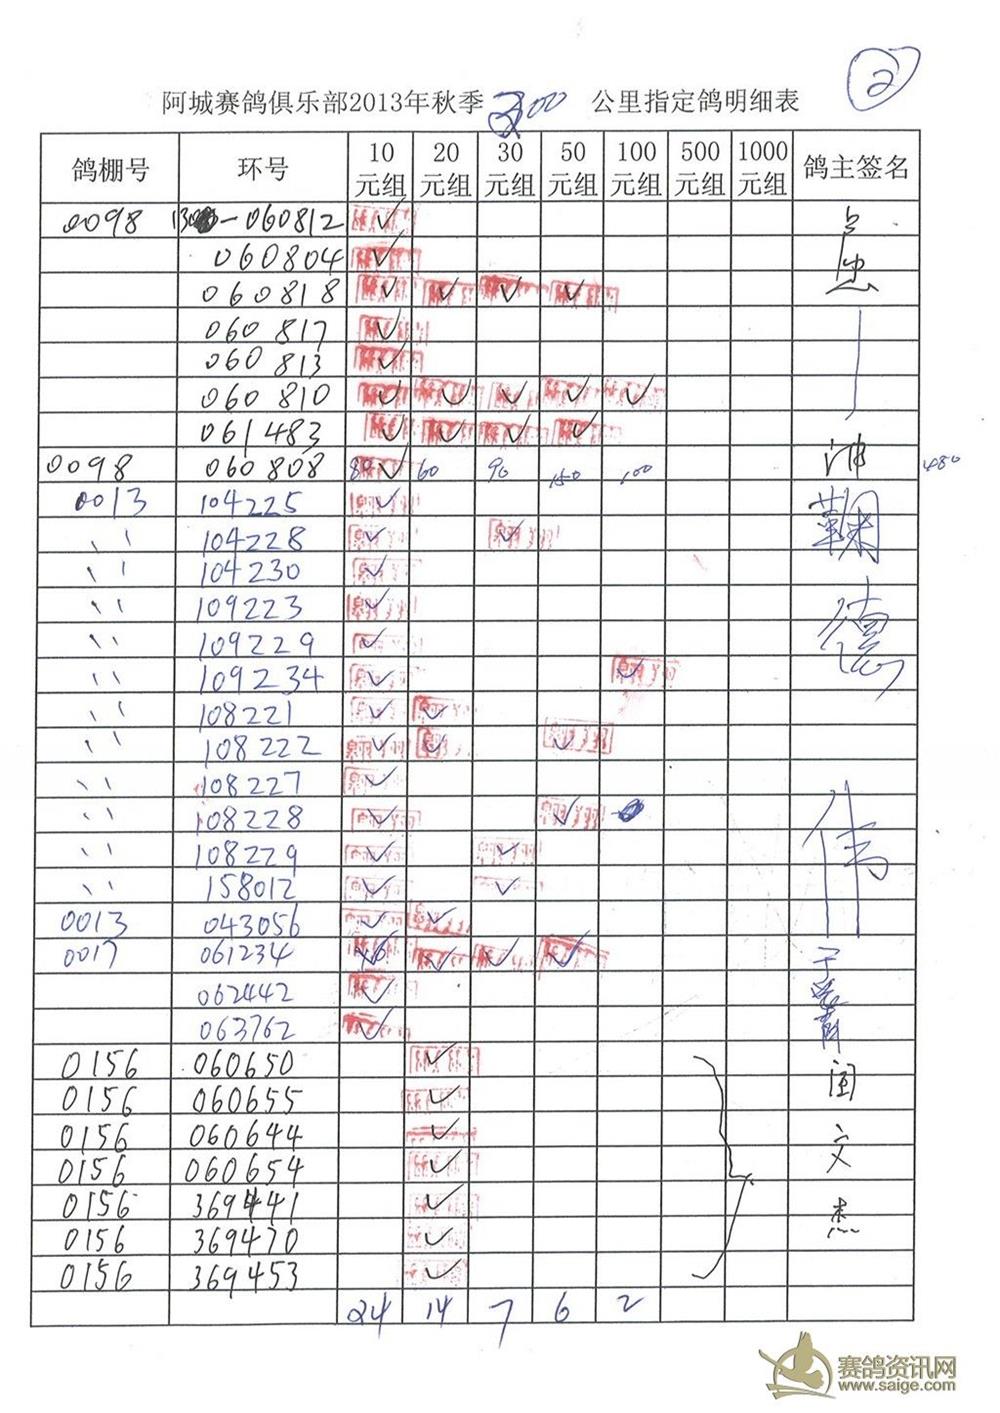 2
阿城赛鸽俱乐部2013年秋季 300 公里指定鸽明细表
鸽棚号 环号 10元组 20元组 30元组 50元组 100元组 500元组 1000元组 鸽主签名
0098 -060812 ✓
060804 ✓
060818 ✓ ✓ ✓ ✓
060817 ✓
060813 ✓
060810 ✓ ✓ ✓ ✓ ✓
061483 ✓ ✓ ✓ ✓
0098 060808 80 ✓ 60 90 150 100 480
0013 104225 ✓
〃 104228 ✓ ✓
〃 104230 ✓
〃 109223 ✓
〃 109229 ✓
〃 109234 ✓ ✓
〃 108221 ✓ ✓
〃 108222 ✓ ✓ ✓
〃 108227 ✓
〃 108228 ✓ ✓
〃 108229 ✓ ✓
〃 158012 ✓ ✓
0013 043056 ✓ ✓
德
伟
0017 061234 ✓ ✓ ✓ ✓
062442 ✓
063762 ✓
0156 060650 ✓ 闰
0156 060655 ✓
0156 060644 ✓ 文
0156 060654 ✓
0156 369441 ✓
0156 369470 ✓ 杰
0156 369453 ✓
24 14 7 6 2
赛鸽资讯网
www.saige.com